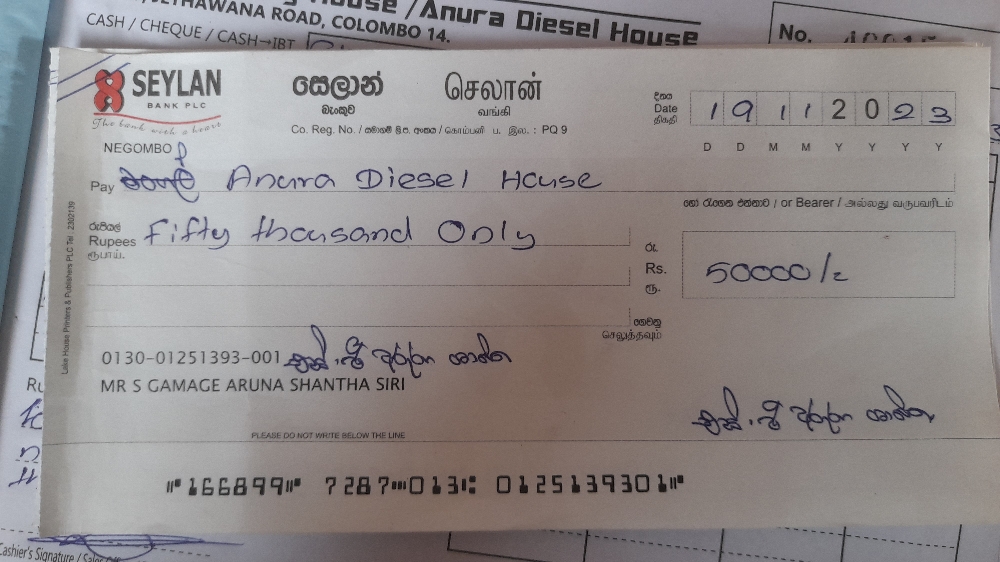 House / Anura Diesel House
JETHAWANA ROAD, COLOMBO 14.
CASH / CHEQUE / CASH→IBT
No.
SEYLAN
BANK PLC
The bank with a heart
සෙලාන්
බැංකුව
செலான்
வங்கி
Co. Reg. No. / සමාගම් ලි.ප. අංකය / கொம்பனி ப. இல. : PQ 9
දිනය
Date
திகதி
1 9 1 1 2 0 2 3
D D M M Y Y Y Y
NEGOMBO
Pay Anura Diesel House
හෝ රැගෙන එන්නාට / or Bearer / அல்லது வருபவரிடம்
රුපියල්
Rupees Fifty thousand Only
ரூபாய்.
රු.
Rs. 50000/=
ரூ.
ගෙවනු
செலுத்தவும்
Lake House Printers & Publishers PLC Tel : 2302139
0130-01251393-001
MR S GAMAGE ARUNA SHANTHA SIRI
PLEASE DO NOT WRITE BELOW THE LINE
⑈166899⑈ 7287⑉013⑆ 0125139301⑈
Cashier's Signature /